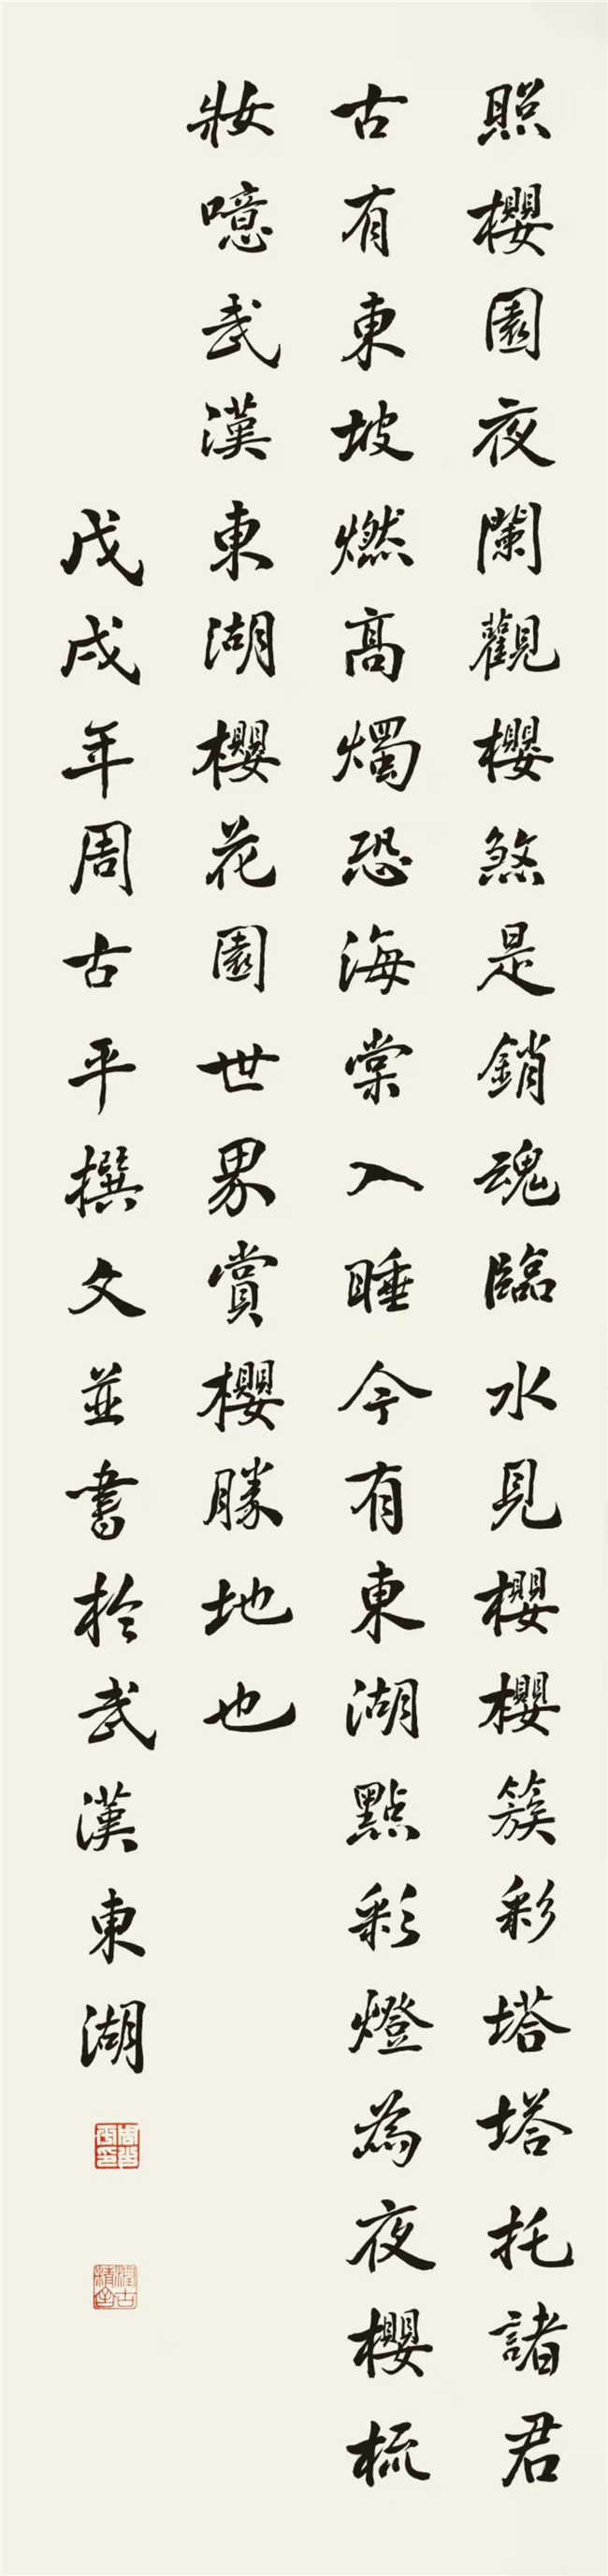 照櫻園夜闌觀櫻煞是銷魂臨水見櫻櫻簇彩塔塔托諸君
古有東坡燃高燭恐海棠入睡今有東湖點彩燈為夜櫻梳
妝噫武漢東湖櫻花園世界賞櫻勝地也
戊戌年周古平撰文並書於武漢東湖